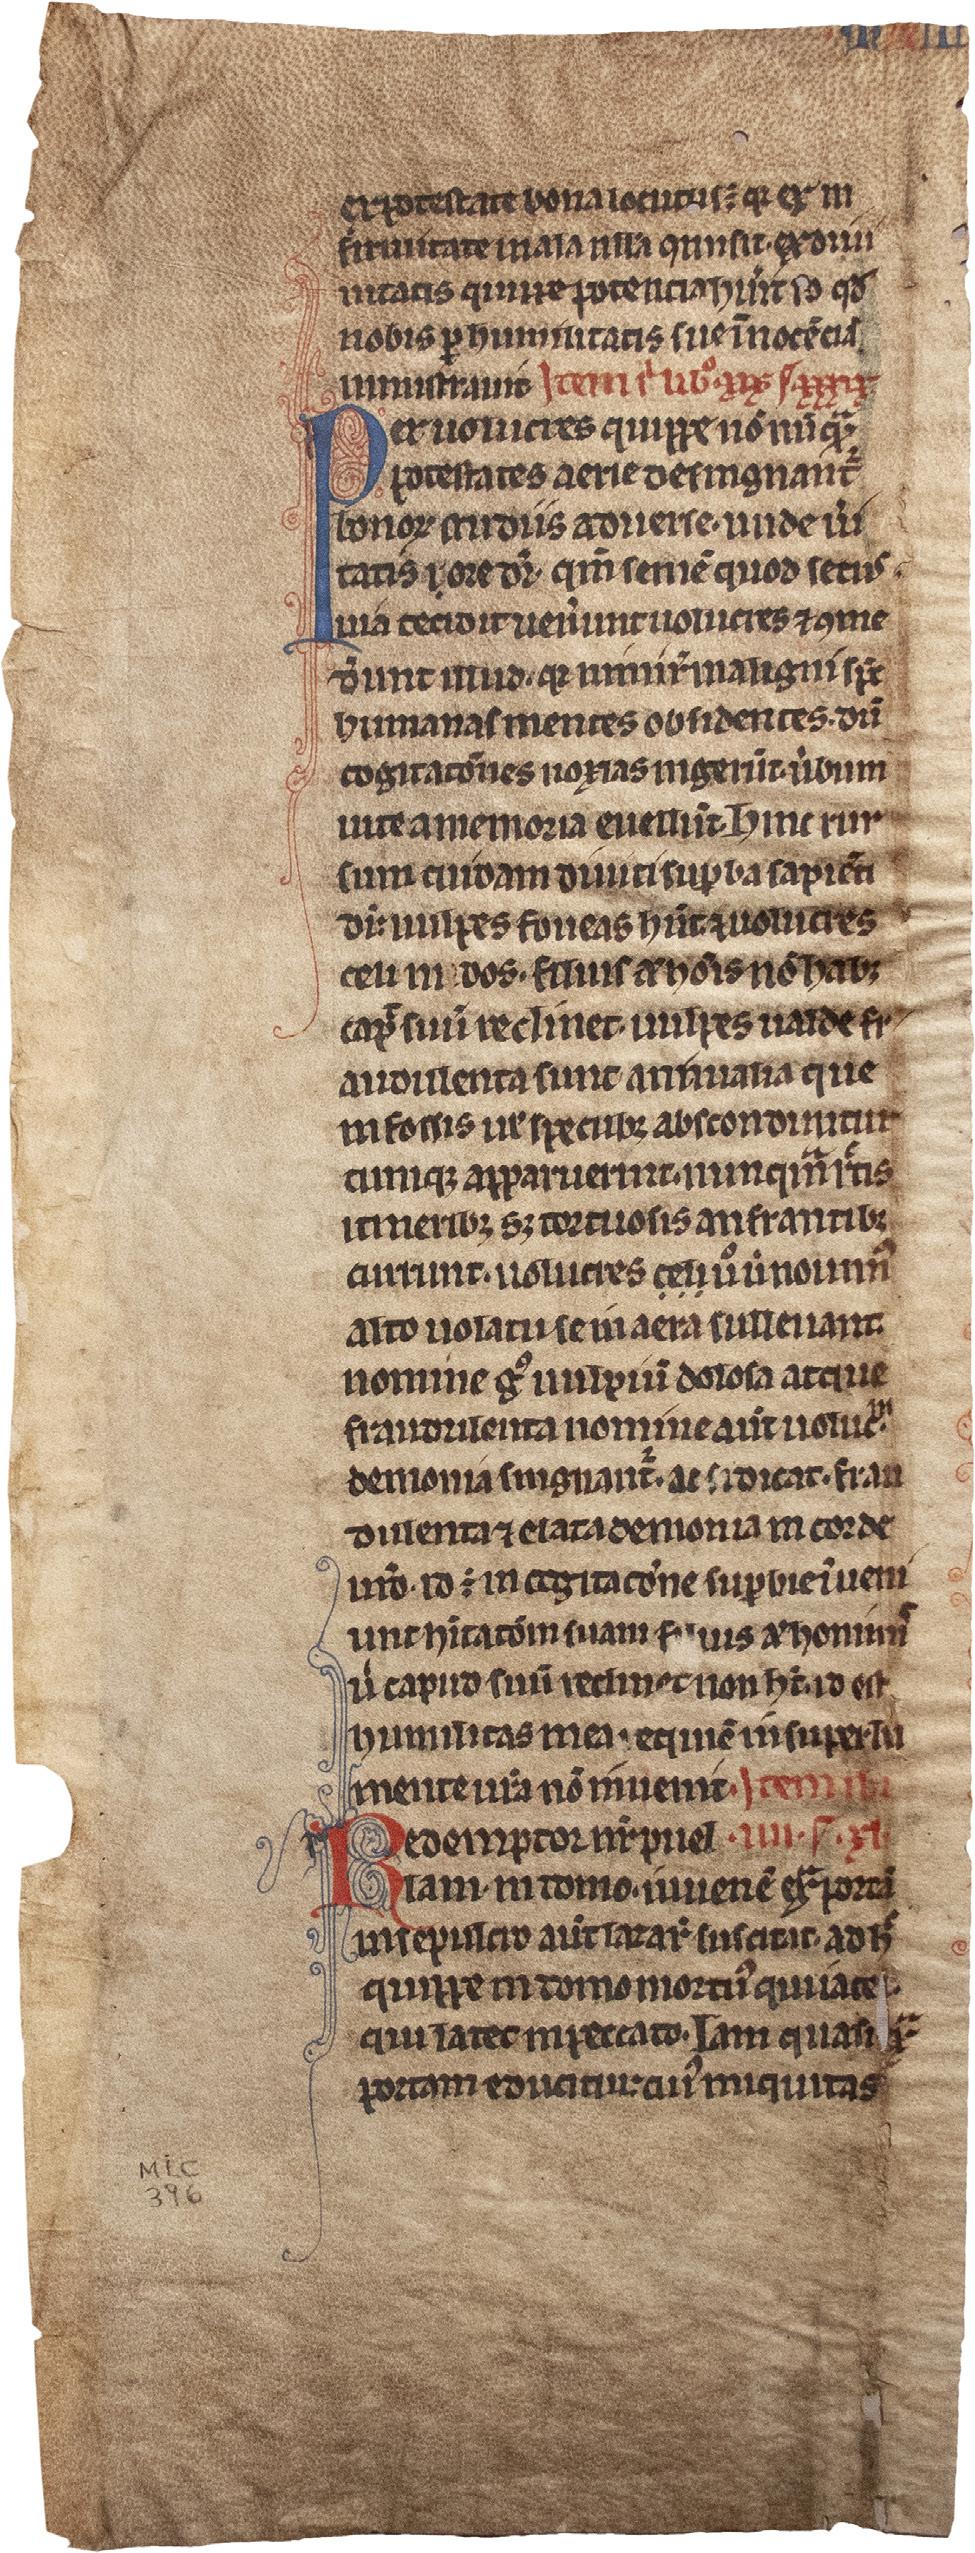 ex potestate bona locutus ÷ qr ex in
firmitate mala nulla qm̄sit. ex diuī
nitatis quippe potencia hūīt id qd
nobis ꝑ humilitatis sue īnocēciā
ministrauit Item
Per uolucres quippe nō nūqᵃ
potestates aerie desingnant᷑
bonoꝝ studiis aduerse. unde ūi
tatis ore dr̄. qm̄ semē quod secus
uiā cecidit uen̄unt uolucres ⁊ ꝯme
d̄unt illud. qr nimir̄ maligni sp̄c
humanas mentes obsidentes. dū
cogitacōnes noxias ingerūt. ūbum
uite a memoria euellūt. Hinc rur
sum cuidam diuiti suꝑba sapiēti
dr̄: uulpes foueas hn̄t ⁊ uolucres
celi ni dos. filius aū hōīs nō habꝫ
cap̄ suū reclinet. uulpes ualde fr
audulenta sunt animalia que
in fossis ur̄ specubꝫ abscondunitur
cumqꝫ apparuerint. nunqᵃm rc̄tis
itineribꝫ sꝫ tortuosis anfrantibꝫ
currunt. uolucres celi ūº ū nouim᷒
alto uolatu se in aera subleuant.
nomine gº uulpiū dolosa atque
fraudulenta nomine aūt uoluc̄m
demonia singnant᷑. ac si dicat. frau
dulenta ⁊ elata demonia in corde
ur̄o. id ÷ in cogitacōne suꝑbie ūr̄ ueni
unt hītacōm suam filius aū homin᷒
ū capud suū reclinet non ht̄. id est
humilitas mea requiē in superba
mente ur̄a nō inuenit. Item ibi
Redemptor nr̄ puel .iiii. s. xi.
lam. in domo. iuuenē exᵃ portā
in sepulcro aūt lazar̄ suscitat. ad h᷒
quippe in domo mortu᷒ qui iacet.
qui latet in peccato. Iam quasi exᵃ
portam educitur. cui᷒ iniquitas
MLC
396